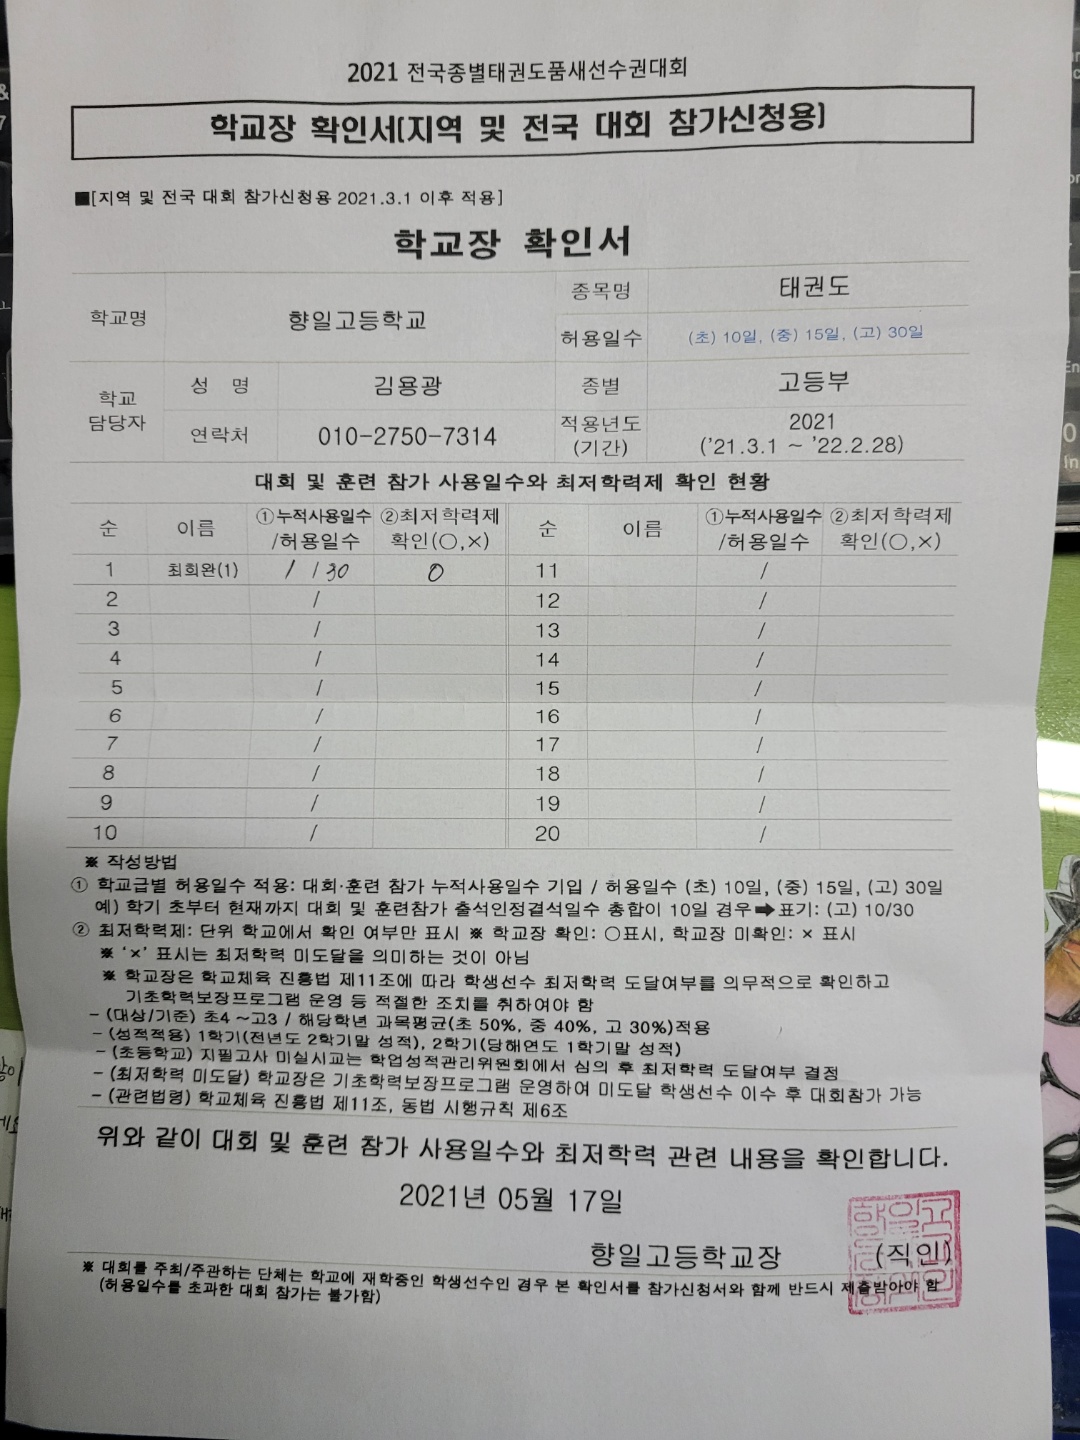 2021 전국종별태권도품새선수권대회
학교장 확인서(지역 및 전국 대회 참가신청용)
■[지역 및 전국 대회 참가신청용 2021.3.1 이후 적용]
학교장 확인서
학교명 향일고등학교 종목명 태권도
허용일수 (초) 10일, (중) 15일, (고) 30일
학교 담당자 성 명 김용광 종별 고등부
연락처 010-2750-7314 적용년도 (기간) 2021 ('21.3.1 ~ '22.2.28)
대회 및 훈련 참가 사용일수와 최저학력제 확인 현황
순 이름 ①누적사용일수 /허용일수 ②최저학력제 확인(○,×) 순 이름 ①누적사용일수 /허용일수 ②최저학력제 확인(○,×)
1 최희완(1) 1 / 30 O 11 /
2 / 12 /
3 / 13 /
4 / 14 /
5 / 15 /
6 / 16 /
7 / 17 /
8 / 18 /
9 / 19 /
10 / 20 /
※ 작성방법
① 학교급별 허용일수 적용: 대회·훈련 참가 누적사용일수 기입 / 허용일수 (초) 10일, (중) 15일, (고) 30일
예) 학기 초부터 현재까지 대회 및 훈련참가 출석인정결석일수 총합이 10일 경우➡표기: (고) 10/30
② 최저학력제: 단위 학교에서 확인 여부만 표시 ※ 학교장 확인: ○표시, 학교장 미확인: × 표시
※ '×' 표시는 최저학력 미도달을 의미하는 것이 아님
※ 학교장은 학교체육 진흥법 제11조에 따라 학생선수 최저학력 도달여부를 의무적으로 확인하고
기초학력보장프로그램 운영 등 적절한 조치를 취하여야 함
- (대상/기준) 초4 ~고3 / 해당학년 과목평균(초 50%, 중 40%, 고 30%)적용
- (성적적용) 1학기(전년도 2학기말 성적), 2학기(당해연도 1학기말 성적)
- (초등학교) 지필고사 미실시교는 학업성적관리위원회에서 심의 후 최저학력 도달여부 결정
- (최저학력 미도달) 학교장은 기초학력보장프로그램 운영하여 미도달 학생선수 이수 후 대회참가 가능
- (관련법령) 학교체육 진흥법 제11조, 동법 시행규칙 제6조
위와 같이 대회 및 훈련 참가 사용일수와 최저학력 관련 내용을 확인합니다.
2021년 05월 17일
향일고등학교장 (직인)
※ 대회를 주최/주관하는 단체는 학교에 재학중인 학생선수인 경우 본 확인서를 참가신청서와 함께 반드시 제출받아야 함
(허용일수를 초과한 대회 참가는 불가함)